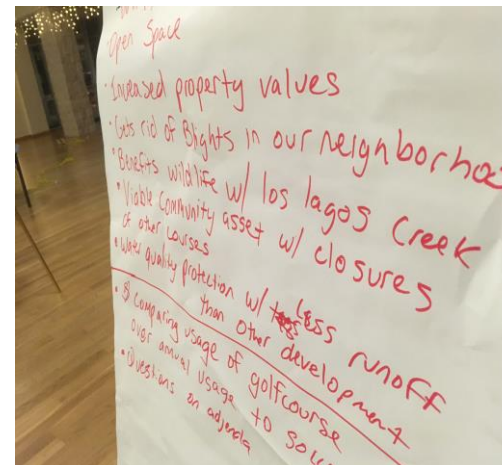 · Open Space
· Increased property values
· Gets rid of Blights in our neighborhoo
· Benefits wildlife w/ los lagos Creek
· Viable community asset w/ closures
of other courses
· Water quality protection w/ less runoff
than other development
· Comparing usage of golfcourse
over annual usage to
· Questions on adjenda